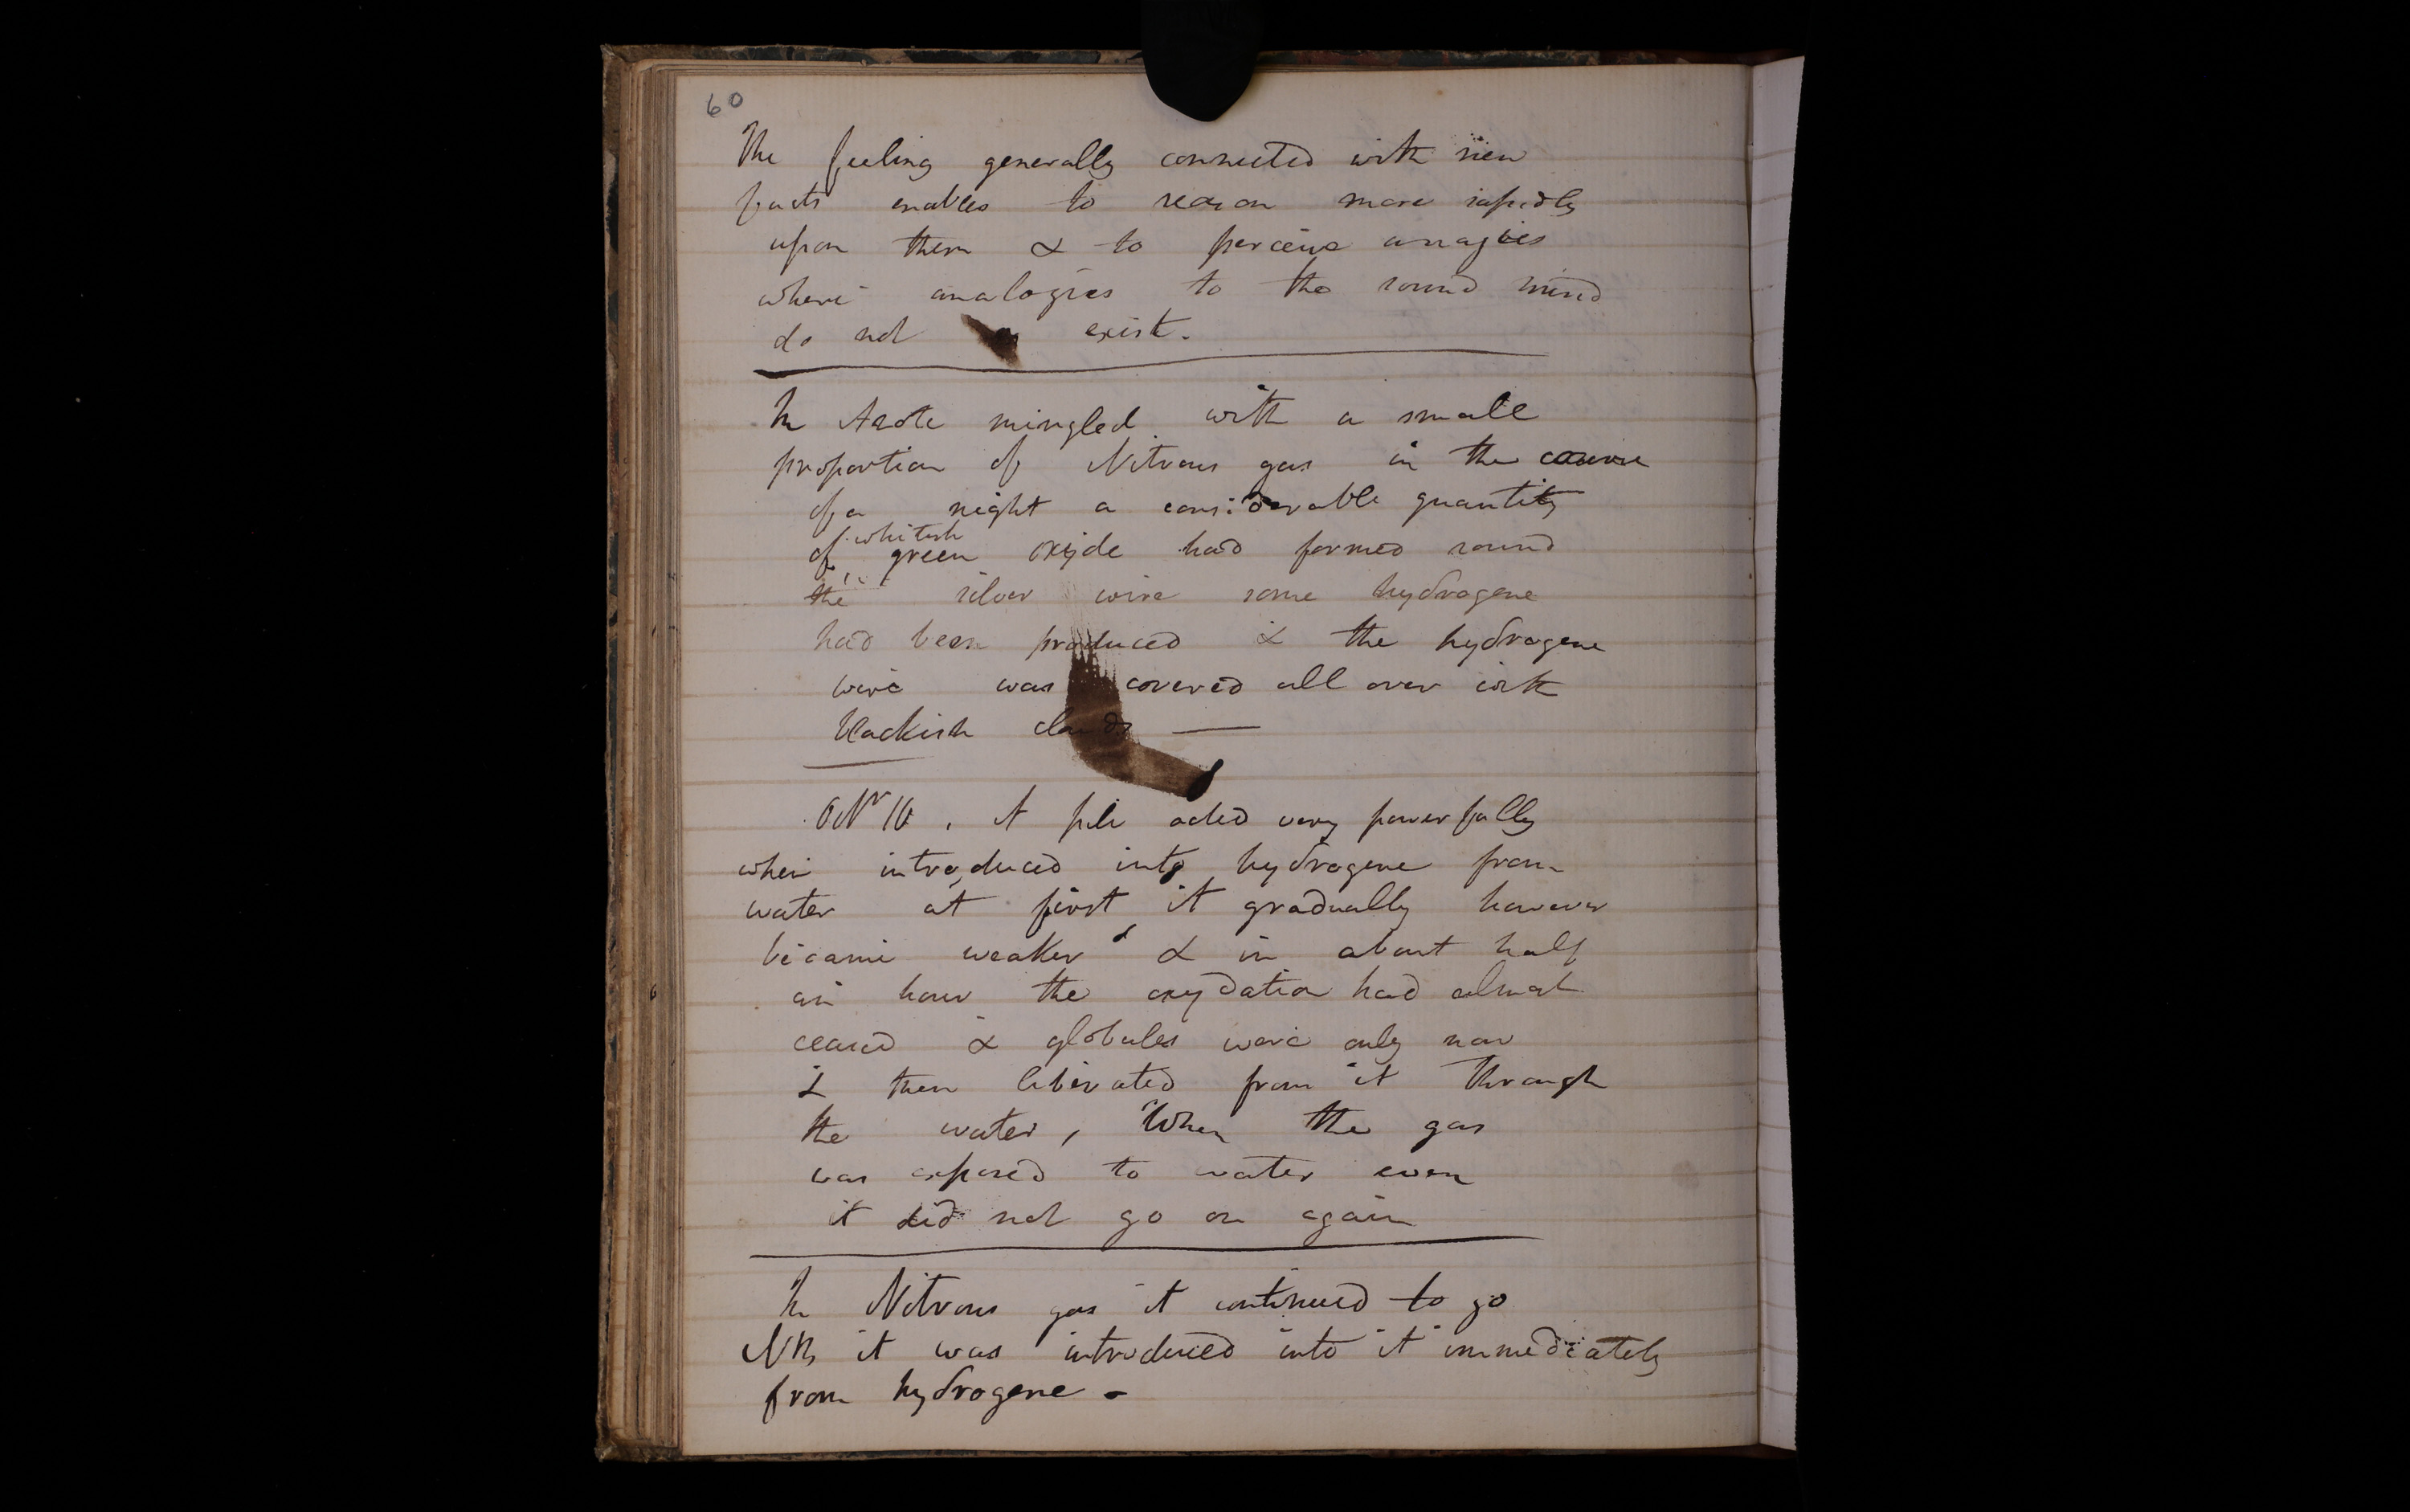 60
The feeling generally connected with new
facts enables to reason more rapidly
upon them & to perceive anagies
where analogies to the sound mind
do not exist.
In Azote mingled with a small
proportion of Nitrous gas in the course
of a night a considerable quantity
of whitish green oxyde had formed round
the silver wire some hydrogene
had been produced & the hydrogene
wire was covered all over with
blackish clouds —
Octr 10. A pile acted very powerfully
when introduced into hydrogene from
water at first it gradually however
became weaker & & in about half
an hour the oxydation had almost
ceased & globules were only now
& then liberated from it through
the water, When the gas
was exposed to water even
it did not go on again
In Nitrous gas it continued to go
NB it was introduced into it immediately
from hydrogene -